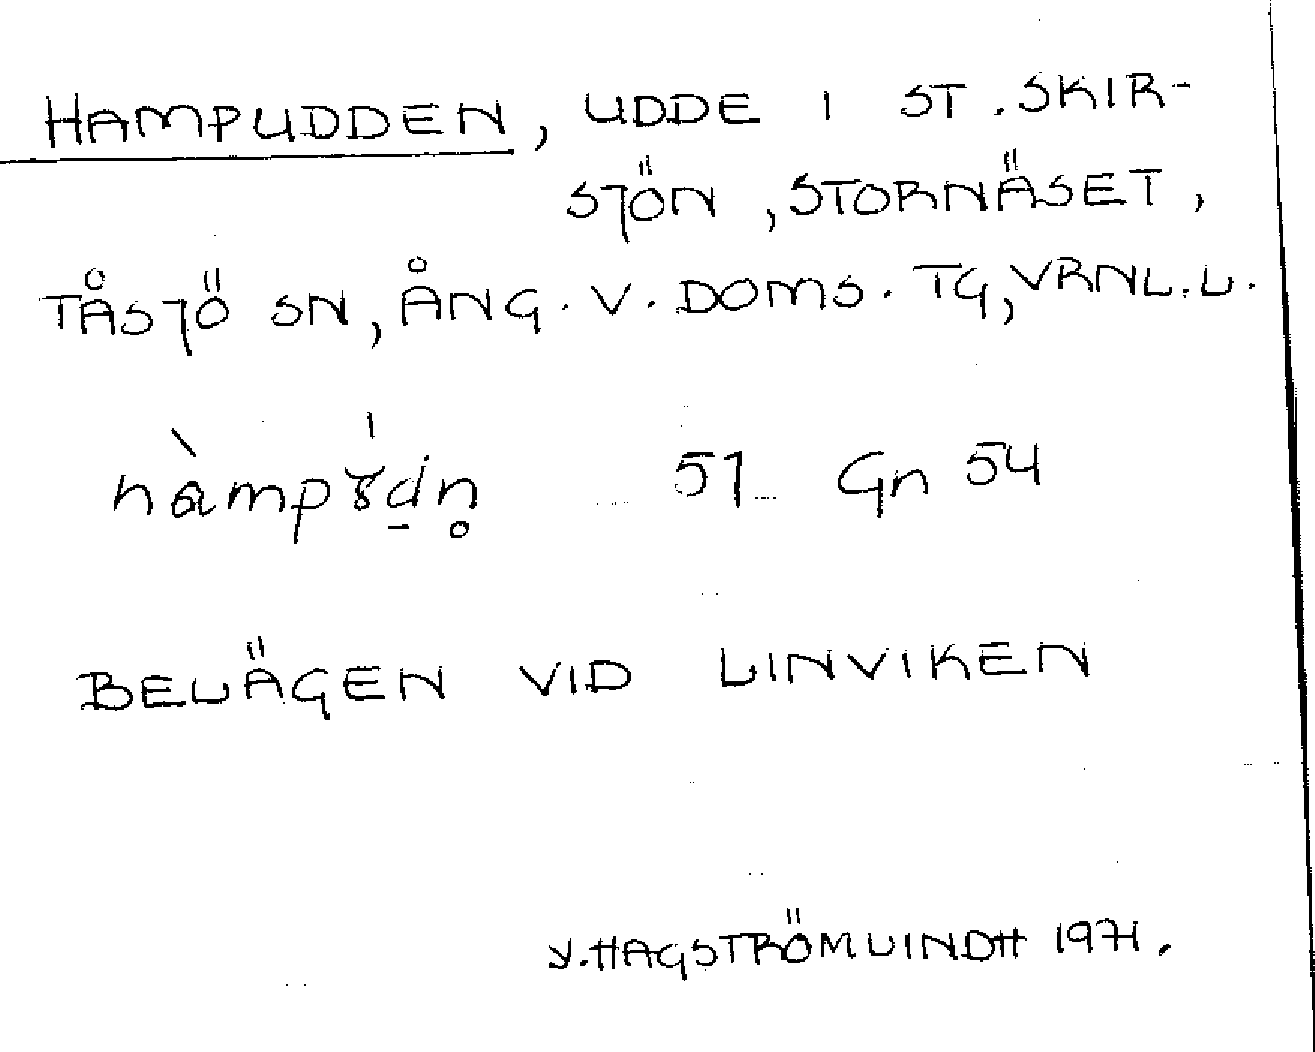 HAMPUDDEN, UDDE I ST. SKIR-
SJÖN, STORNÄSET,
TÅSJÖ SN, ÅNG. V. DOMS. TG, VRNL. L.
51 Gn 54
BELÄGEN VID LINVIKEN
Y. HAGSTRÖMLINDH 1971.